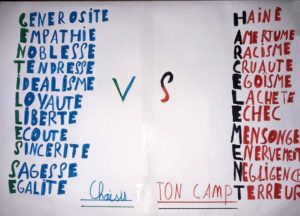 GENEROSITE
EMPATHIE
NOBLESSE
TENDRESSE
IDEALISME
LOYAUTE
LIBERTE
ECOUTE
SINCERITE
SAGESSE
EGALITE
VS
HAINE
AMERTUME
RACISME
CRUAUTE
EGOISME
LACHETE
ECHEC
MENSONGE
ENERVEMENT
NEGLIGENCE
TERREUR
Choisis TON CAMP